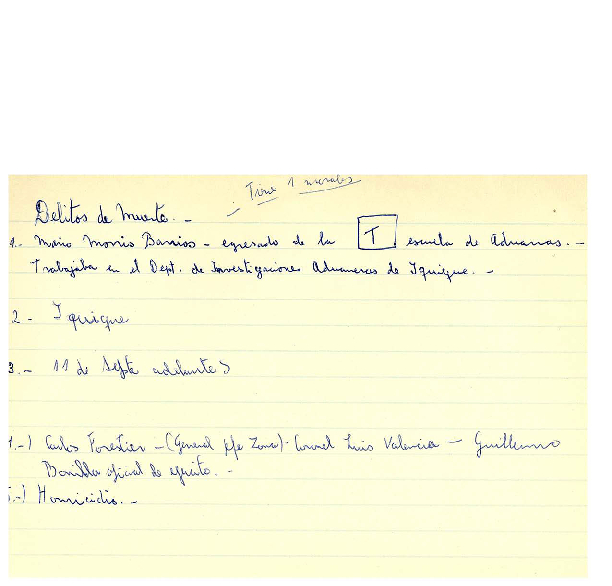 Tiene 1
Delitos de Muerte. -
1.- Mario Morris Barrios - egresado de la T escuela de Aduanas. -
Trabajaba en el Dept. de Investigaciones Aduaneras de Iquique. -
2 - Iquique
3.- 11 de Septe adelante
4.-) Carlos Forestier - (General jefe Zona) - Coronel Luis Valencia - Guillermo
Bonilla oficial de ejército. -
5.-) Homicidio. -